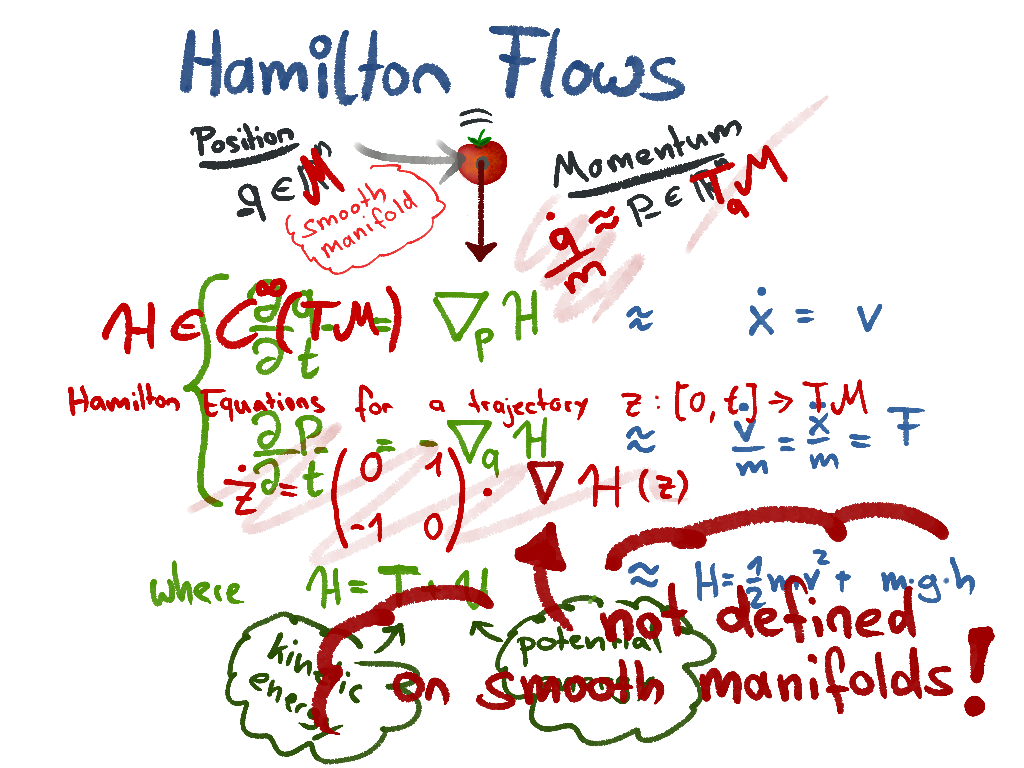 Hamilton Flows
Position
q ∈ ℝⁿ M
smooth
manifold
Momentum
p ∈ ℝⁿ T_qM
q̇/m ≈
H ∈ C^∞(TM)
∂q/∂t = ∇_p H ≈ ẋ = v
Hamilton Equations for a trajectory z : [0, t] → TM
∂p/∂t = -∇_q H ≈ v̇/m = ẍ/m = F
ż = (0 1 -1 0) · ∇ H (z)
where H = T + U ≈ H = 1/2 mv² + m·g·h
kinetic
energy
potential
not defined
on smooth manifolds!